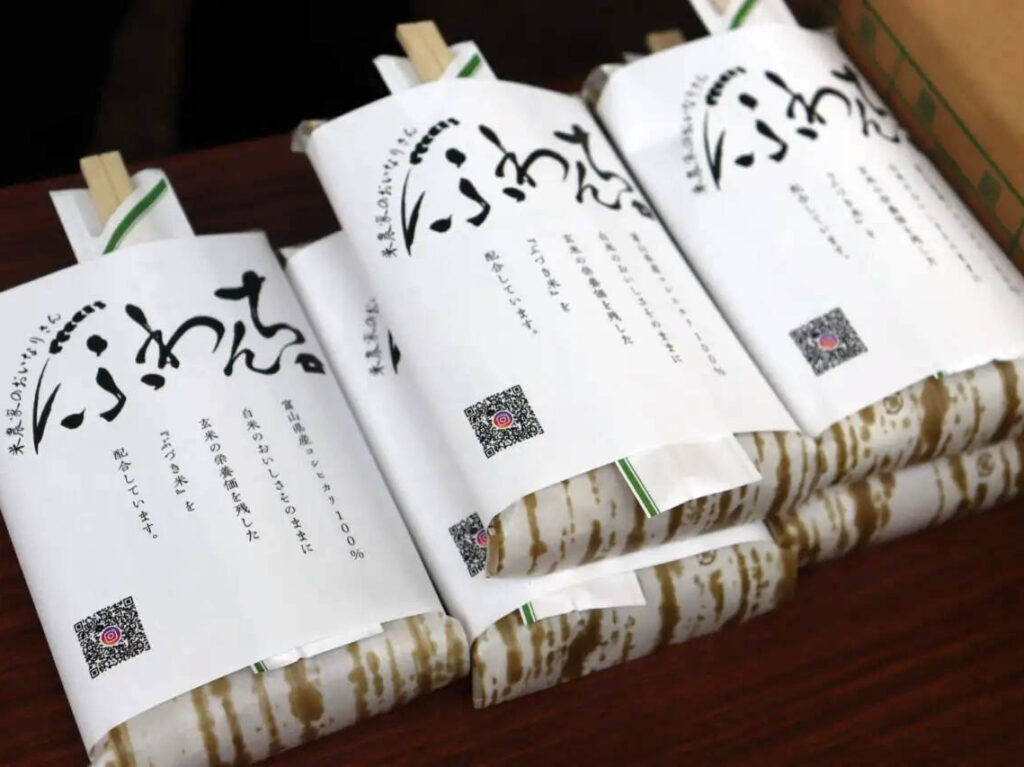 米泉家のおいなりさん
富山県産コシヒカリ100%
白米のおいしさそのままに
玄米の栄養価を残した
『ぶづき米』を
配合しています。
米泉家のおいなりさん
富山県産コシヒカリ100%
白米のおいしさそのままに
玄米の栄養価を残した
『ぶづき米』を
配合しています。
米泉家のおいなりさん
『ぶづき米』を
配合しています。